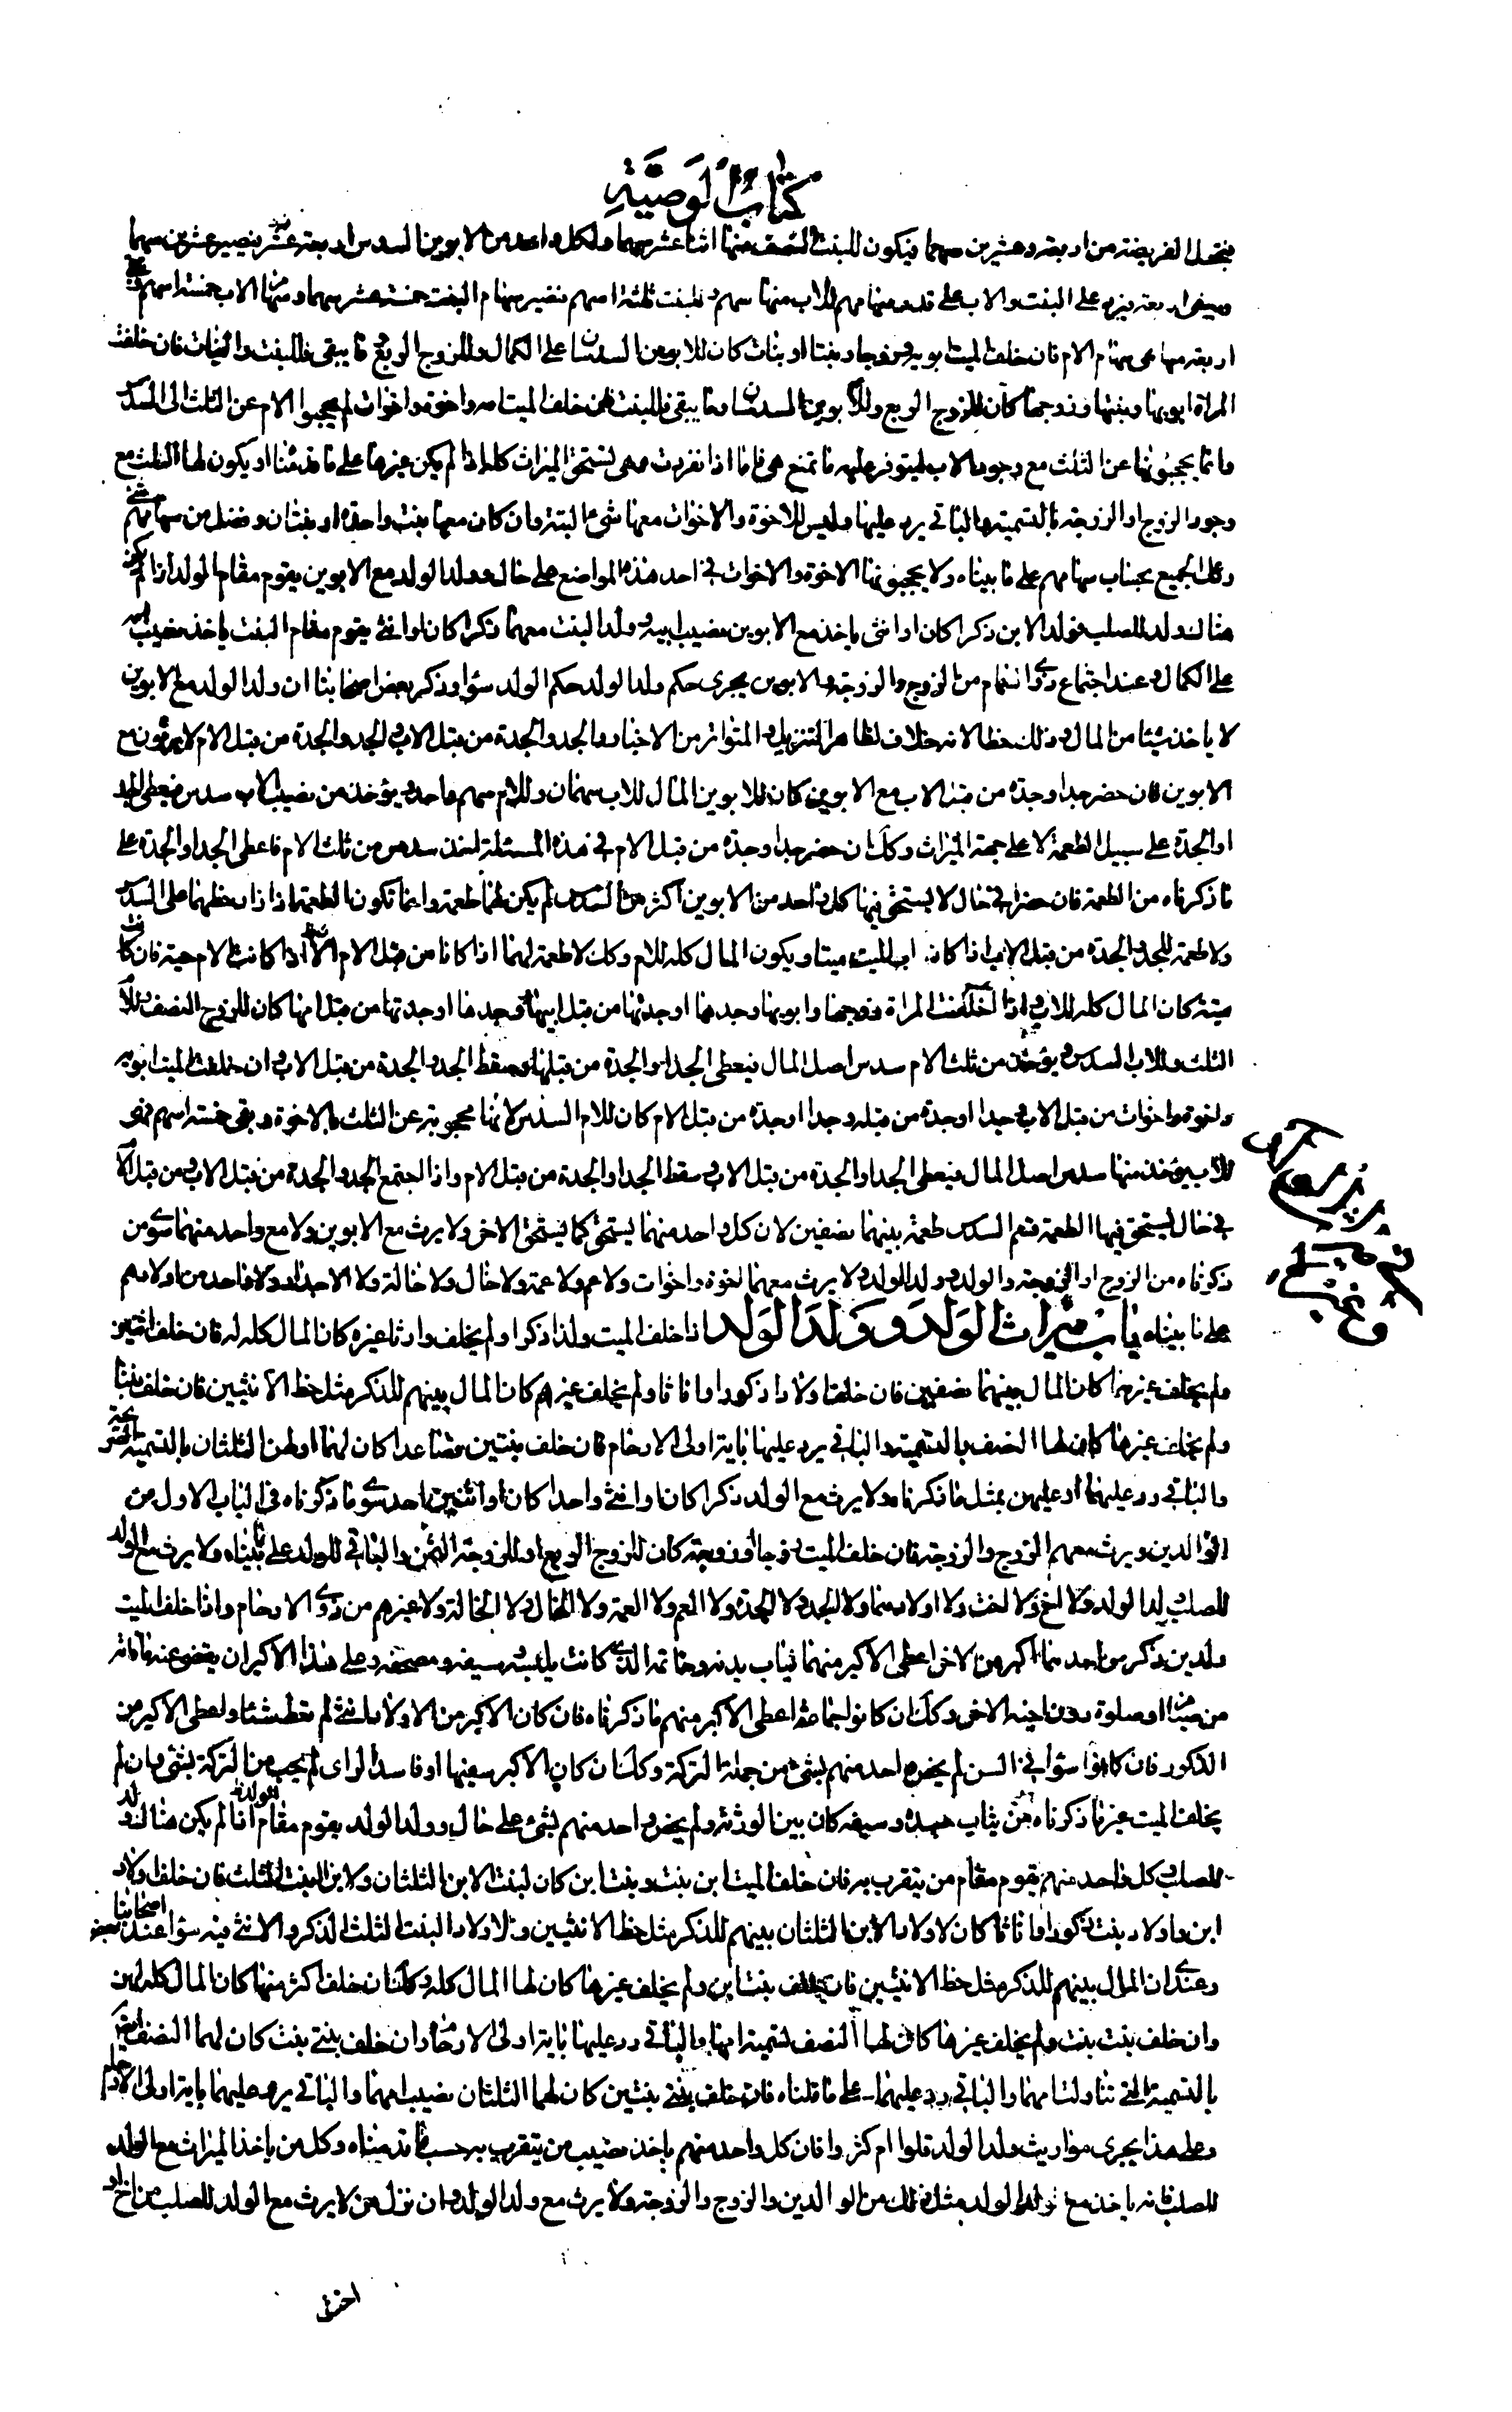 كتاب الوصية
فتجعل الفريضة من اربعة وعشرين سهما فيكون للبنت النصف منها اثنا عشر سهما ولكل واحد من الابوين السدس اربعة فيصير عشرين سهما
ويبقى اربعة يرد على البنت والاب على قدر سهامهم للاب منها سهم وللبنت ثلثة اسهم فتصير سهام البنت خمسة عشر سهما وسهام الاب خمسة اسهم
اربعة سهام سهام الام فان خلف الميت ابويه وزوجا وبنتا او بنات كان للابوين السدسان على الكمال وللزوج الربع وما يبقى فللبنت والبنات فان خلفت
المراة ابويها وبنتها وزوجها كان للزوج الربع وللابوين السدسان وما يبقى فللبنت فان خلف الميت امه واخوة واخوات لم يحجبوا الام عن الثلث الى السدس
وانما يحجبونها عن الثلث مع وجود الاب ليتوفر عليه ما تمنع هي فاما اذا انفردت فهي تستحق الميراث كله اذا لم يكن غيرها على ما قدمنا او يكون لها الثلث مع
وجود الزوج او الزوجة بالتسمية والباقي يرد عليها وليس للاخوة والاخوات معها شئ البتة وان كان معها بنت واحدة او بنتان وفضل من سهامهم شئ
رد على الجميع بحساب سهامهم على ما بيناه ولا يحجبونها الاخوة والاخوات في احد هذه المواضع على حال وولد الولد مع الابوين يقوم مقام الولد اذا لم يكن
هناك ولد للصلب فولد الابن ذكرا كان او انثى ياخذ مع الابوين نصيب ابيه وولد البنت معهما ذكرا كان او انثى يقوم مقام البنت ياخذ نصيب امه
على الكمال وعند اجتماع ذوى السهام من الزوج والزوجة والابوين يجرى حكم ولد الولد حكم الولد سواء وذكر بعض اصحابنا ان ولد الولد مع الابوين
لا ياخذ شيئا من المال وذلك خطا لانه خلاف لظاهر التنزيل والمتواتر من الاخبار والجد والجدة من قبل الاب والجد والجدة من قبل الام لا يرثون مع
الابوين فان حضر جد او جدة من قبل الاب مع الابوين كان للابوين المال للاب سهمان وللام سهم واحد ويؤخذ من نصيب الاب سدس فيعطى الجد
او الجدة على سبيل الطعمة لا على جهة الميراث وكذلك ان حضر جد او جدة من قبل الام في هذه المسئلة اخذ سدس من ثلث الام فاعطى الجد او الجدة على
ما ذكرناه من الطعمة فان حضرا في حال لا يستحق فيها كل واحد من الابوين اكثر من السدس لم يكن لهما طعمة وانما تكون الطعمة اذا زاد حظهما على السدس
ولا طعمة للجد والجدة من قبل الاب اذا كان اب الميت ميتا ويكون المال كله للام وكذلك لا طعمة لهما اذا كانا من قبل الام الا اذا كانت الام حية فان كانت
ميتة كان المال كله للاب واذا خلفت المراة زوجها وابويها وجدها او جدتها من قبل ابيها وجدها او جدتها من قبل امها كان للزوج النصف وللام
الثلث وللاب السدس ويؤخذ من ثلث الام سدس اصل المال فيعطى الجد او الجدة من قبلها وسقط الجد والجدة من قبل الاب وان خلف الميت ابويه
واخوة واخوات من قبل الاب وجدا او جدة من قبله وجدا او جدة من قبل الام كان للام السدس لانها محجوبة عن الثلث بالاخوة وبقى خمسة اسهم فهو
للاب يؤخذ منها سدس اصل المال فيعطى الجد او الجدة من قبل الاب وسقط الجد والجدة من قبل الام واذا اجتمع الجد والجدة من قبل الاب ومن قبل الام
في حال يستحق فيها الطعمة قسم السدس طعمة بينهما نصفين لان كل واحد منهما يستحق كما يستحق الاخر ولا يرث مع الابوين ولا مع واحد منهما سوى من
ذكرناه من الزوج او الزوجة والولد وولد الولد ولا يرث معهما اخوة واخوات ولا عم ولا عمة ولا خال ولا خالة ولا الاجداد ولا واحد من اولادهم
على ما بيناه باب ميراث الولد وولد الولد اذا خلف الميت ولدا ذكرا ولم يخلف وارثا غيره كان المال كله له فان خلف اثنين
ولم يخلف غيرهما كان المال بينهما نصفين فان خلف اولادا ذكورا واناثا ولم يخلف غيرهم كان المال بينهم للذكر مثل حظ الانثيين فان خلف بنتا
ولم يخلف غيرها كان لها النصف بالتسمية والباقي يرد عليها باية اولى الارحام فان خلف بنتين فصاعدا كان لهما او لهن الثلثان بالتسمية الصريحة
والباقي رد عليهما او عليهن بمثل ما ذكرناه ولا يرث مع الولد ذكرا كان او انثى واحدا كان او اثنين احد سوى ما ذكرناه في الباب الاول من
الوالدين ويرث معهم الزوج والزوجة فان خلف الميت زوجا او زوجة كان للزوج الربع او للزوجة الثمن والباقي للولد على ما بيناه ولا يرث مع الولد
للصلب ولد الولد ولا اخ ولا اخت ولا اولادهما ولا الجد ولا الجدة ولا العم ولا العمة ولا الخال ولا الخالة ولا غيرهم من ذوى الارحام واذا خلف الميت
ولدين ذكرين احدهما اكبر من الاخر اعطى الاكبر منهما ثياب بدنه وخاتمه الذى كانت يلبسه وسيفه ومصحفه وعلى هذا الاكبر ان يقضى عنه ما فاته
من صيام او صلوة دون اخيه الاخر وكذلك ان كانوا جماعة اعطى الاكبر منهم ما ذكرناه فان كان الاكبر من الاولاد انثى لم تعط شيئا واعطى الاكبر من
الذكور فان كانوا سواء في السن لم يخص واحد منهم بشئ من جملة التركة وكذلك ان كان الاكبر سفيها او فاسد الراى لم يحب من التركة بشئ وان لم
يخلف الميت غير ما ذكرناه من ثياب جسده وسيفه كان بين الورثة ولم يخص واحد منهم بشئ على حال وولد الولد يقوم مقام الولد اذا لم يكن هناك ولد
للصلب وكل واحد منهم يقوم مقام من يتقرب به فان خلف الميت ابن بنت وبنت ابن كان لبنت الابن الثلثان ولابن البنت الثلث فان خلف اولاد
ابن واولاد بنت ذكورا واناثا كان لاولاد الابن الثلثان بينهم للذكر مثل حظ الانثيين ولاولاد البنت الثلث الذكر والانثى فيه سواء عند بعض اصحابنا
وعندى ان المال بينهم للذكر مثل حظ الانثيين فان خلف بنت ابن ولم يخلف غيرها كان لها المال كله وكذلك ان خلف اكثر منها كان المال كله لهن
وان خلف بنت بنت ولم يخلف غيرها كان لها النصف تسمية امها والباقي رد عليها باية اولى الارحام وان خلف بنتى بنت كان لهما النصف ايضا
بالتسمية التى تناولت امهما والباقي رد عليهما على ما قلناه فان خلف بنتى بنتين كان لهما الثلثان نصيب امهما والباقي يرد عليهما باية اولى الارحام
وعلى هذا يجرى مواريث ولد الولد قلوا ام كثروا فان كل واحد منهم ياخذ نصيب من يتقرب به حسب ما قدمناه وكل من ياخذ الميراث مع الولد
للصلب فانه ياخذ مع ولد الولد مثل ذلك من الوالدين والزوج والزوجة ولا يرث مع ولد الولد وان نزل من لا يرث مع الولد للصلب من اخ او